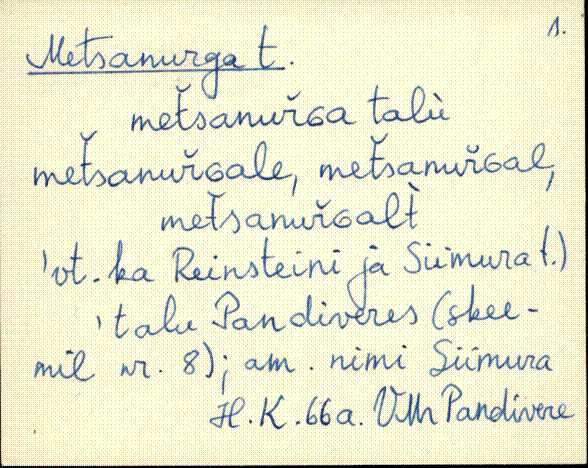 1.
Metsanurga t.
met̆sanuřɢa talù
met̆sanuřɢale, met̆sanuřɢal,
met̆sanuřɢalt̀
'vt. ka Reinsteini ja Siimura t.)
'talu Pandiveres (skee-
mil nr. 8); am. nimi Siimura
H.K. 66a. VMr Pandivere